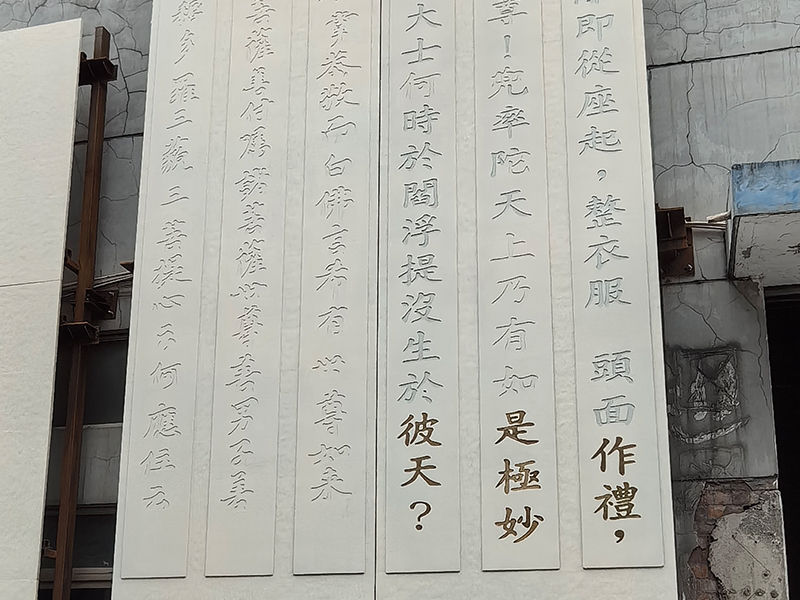 即從座起，整衣服 頭面作禮，
尊！兜率陀天上乃有如是極妙
大士何時於閻浮提沒生於彼天？
掌恭敬而白佛言希有世尊如来
菩薩善付嘱諸菩薩世尊善男子善
耨多羅三藐三菩提心云何應住云